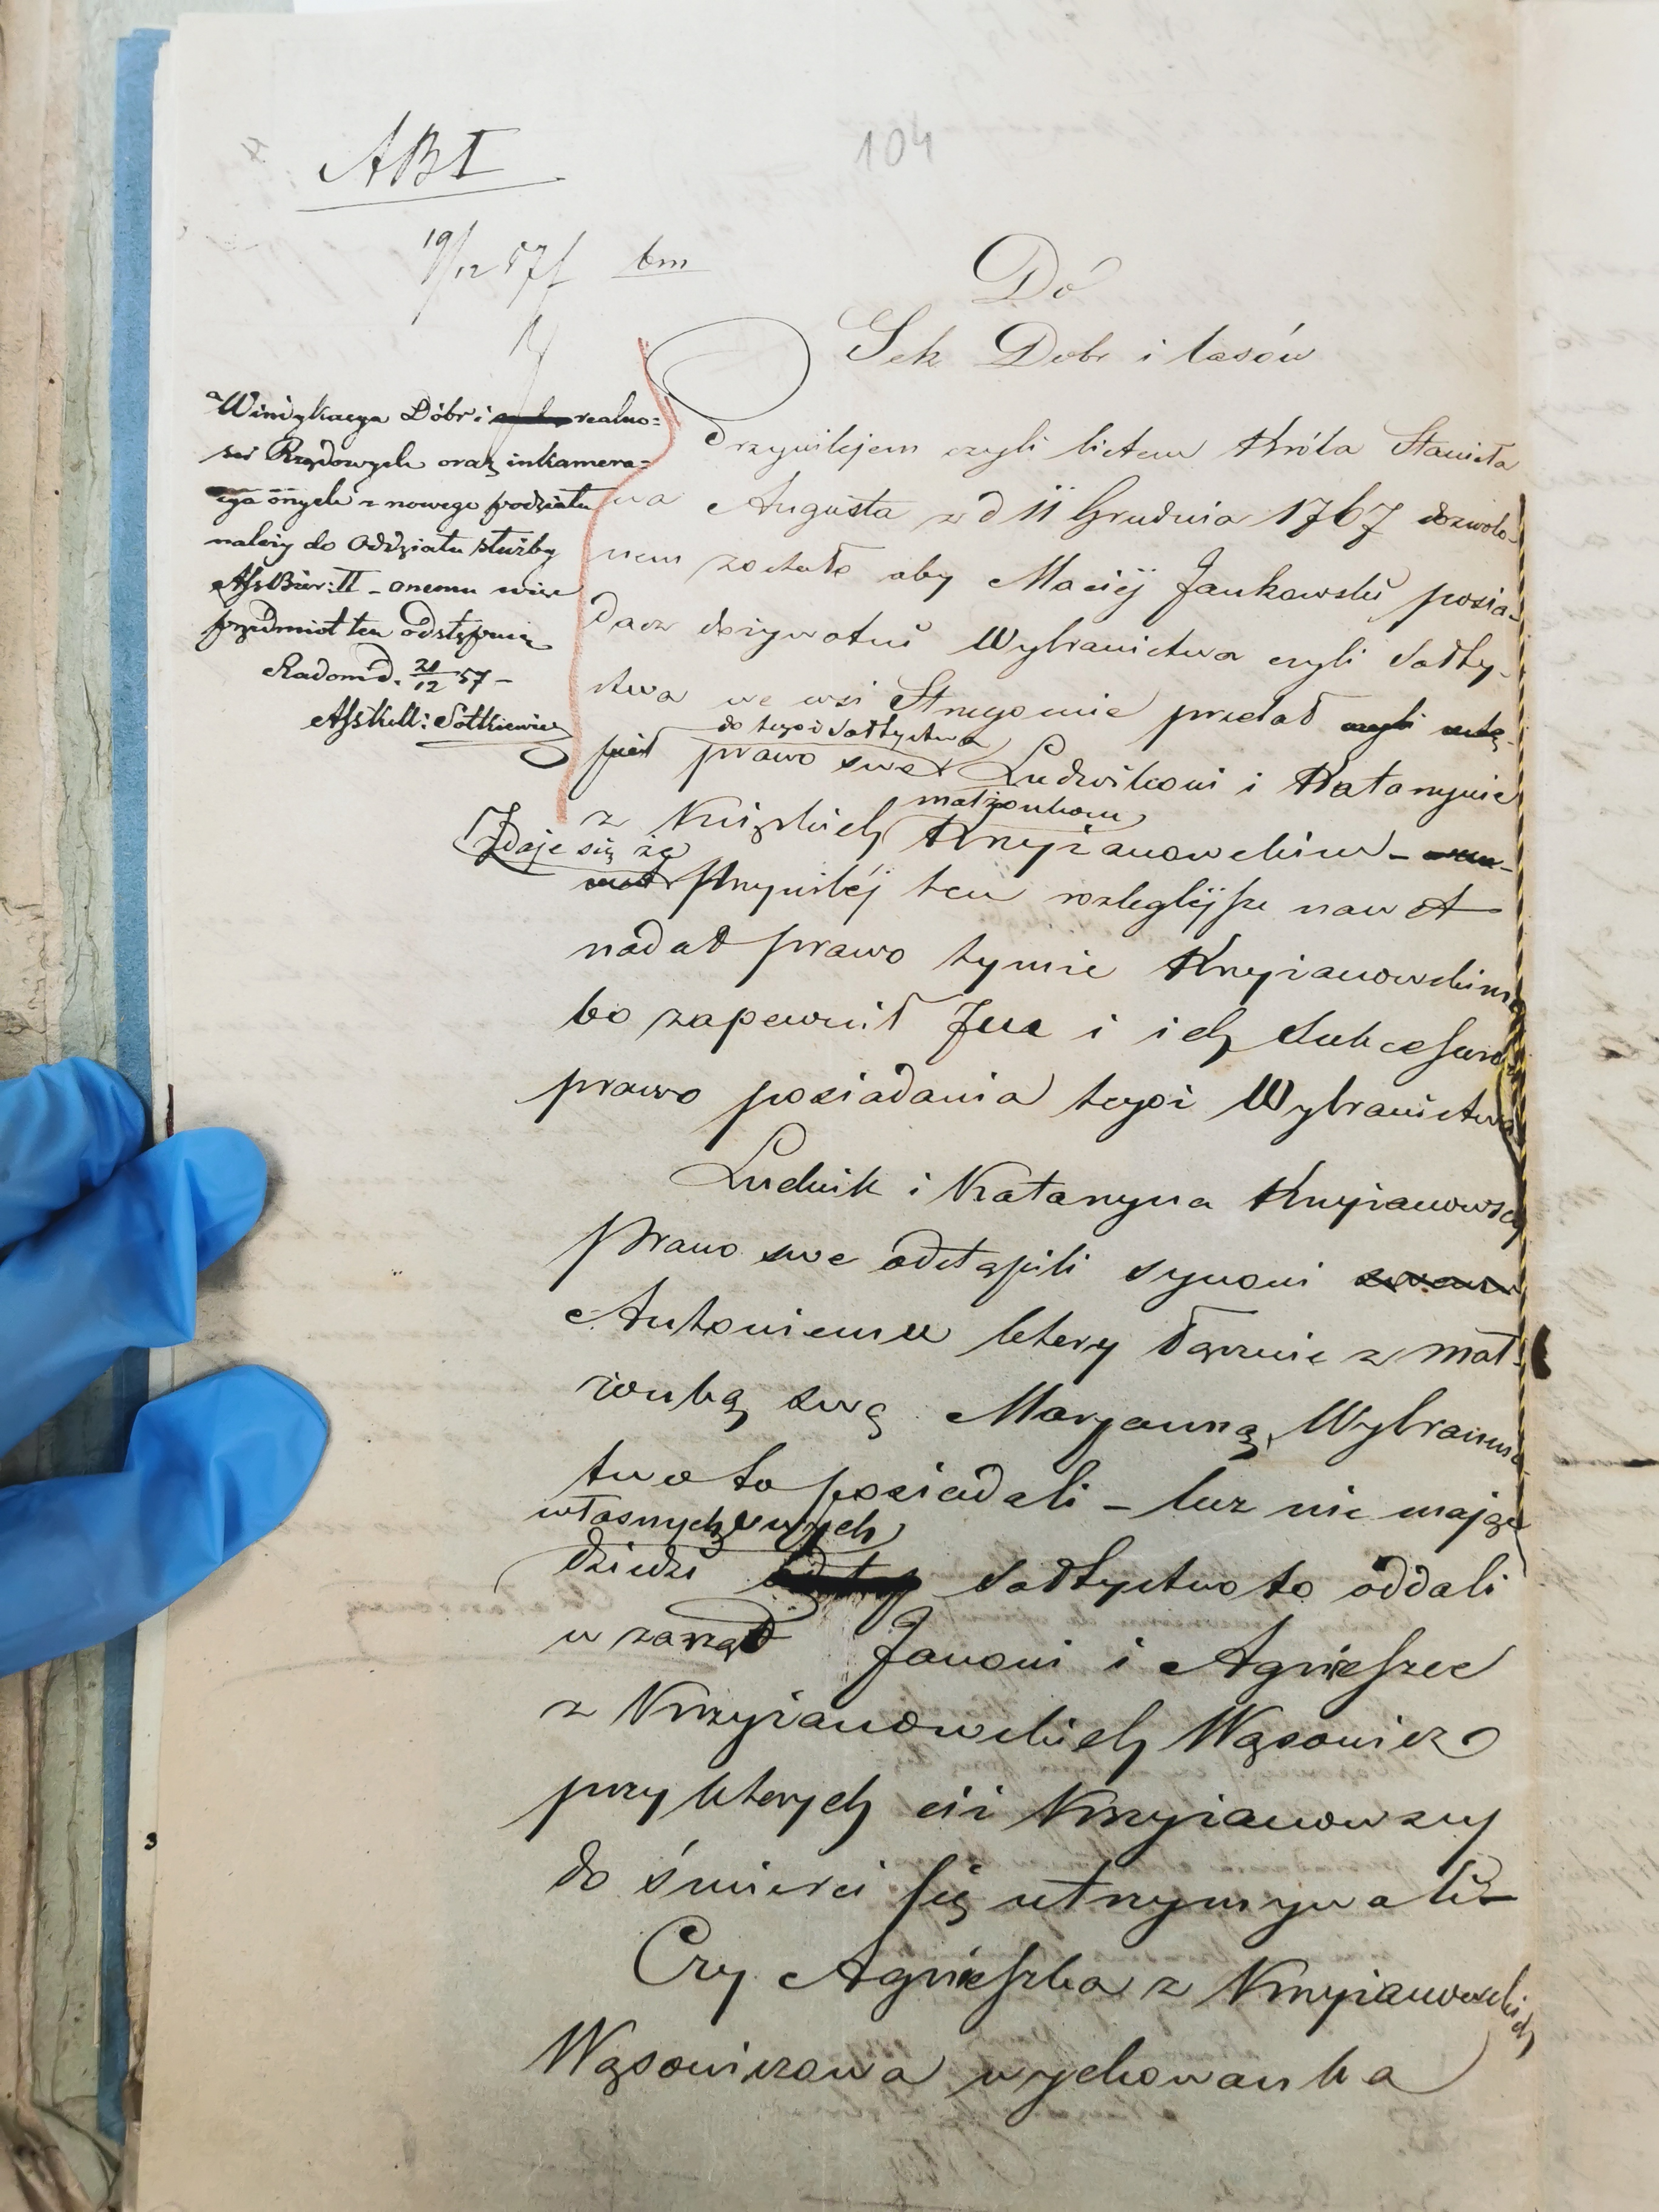 104
ABI
19/12 57
bm
Do
Sek Dobr i lasów
Windykacya Dóbr i realno=
ści Rządowych oraz inkamera=
cya onych z nowego podziału
należy do Oddziału służby
Ass Biur: II – onemu więc
przedmiot ten odstępuię
Radom d. 20/12 57 –
Sołkiewicz
Przywilejem czyli listem Króla Stanisła
wa Augusta z d 11 Grudnia 1767 dozwolo-
nem zostało aby Maciéj Jankowski posia-
dacz dożywotni Wybraniectwa czyli Sołty-
stwa we wsi Stregonie przelał
do tegoż Sołtystwa
prawo swe Ludwikowi i Katarzynie
małżonkom
z Knizkich Krzyżanowskim –
Zdaje się że
Przywiléj ten rozlegléjsze nawet
nadał prawo tymże Krzyżanowskim
bo zapewnił Im i ich Sukcessorom
prawo posiadania tegoż Wybraniectwa
Ludwik i Katarzyna Krzyżanowscy
Prawo swe odstąpili synowi swemu
Antoniemu który łącznie z mał-
żonką swą Maryanną, Wybraniec-
two to posiadali – lecz nie mając
własnych
dzieci Sołtystwo to oddali
w zarząd Janowi i Agnieszce
z Krzyżanowskich Wąsowicz
przy których ciż Krzyżanowscy
do śmierci się utrzymywali –
Czy Agnieszka z Krzyżanowskich
Wąsowiczowa wychowanka
3